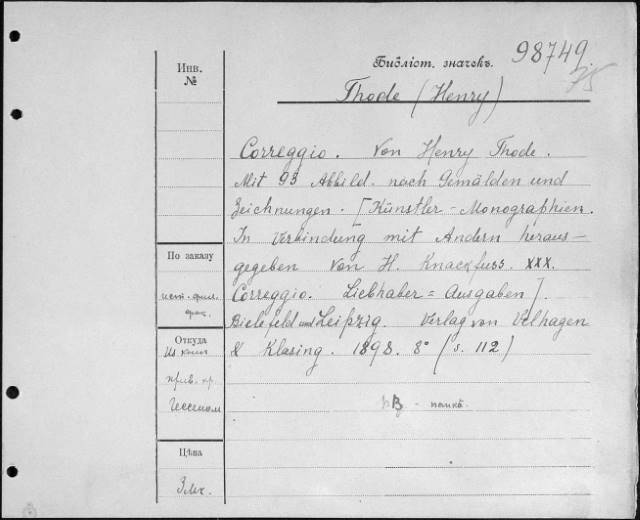 Библіот. значекъ.
98749.
75
Инв.
№
Thode (Henry)
Correggio. Von Henry Thode.
Mit 93 Abbild. nach Gemälden und
Zeichnungen. [Künstler-Monographien.
In Verbindung mit Andern heraus-
gegeben von H. Knackfuss. XXX.
Correggio. Liebhaber=Ausgaben].
Bielefeld und Leipzig. Verlag von Velhagen
& Klasing. 1898. 8° (s. 112)
По заказу
ист.-фил.
фак.
Откуда
Из книг
прив. пр.
Гессеном
папка
Цѣна
3 мк.